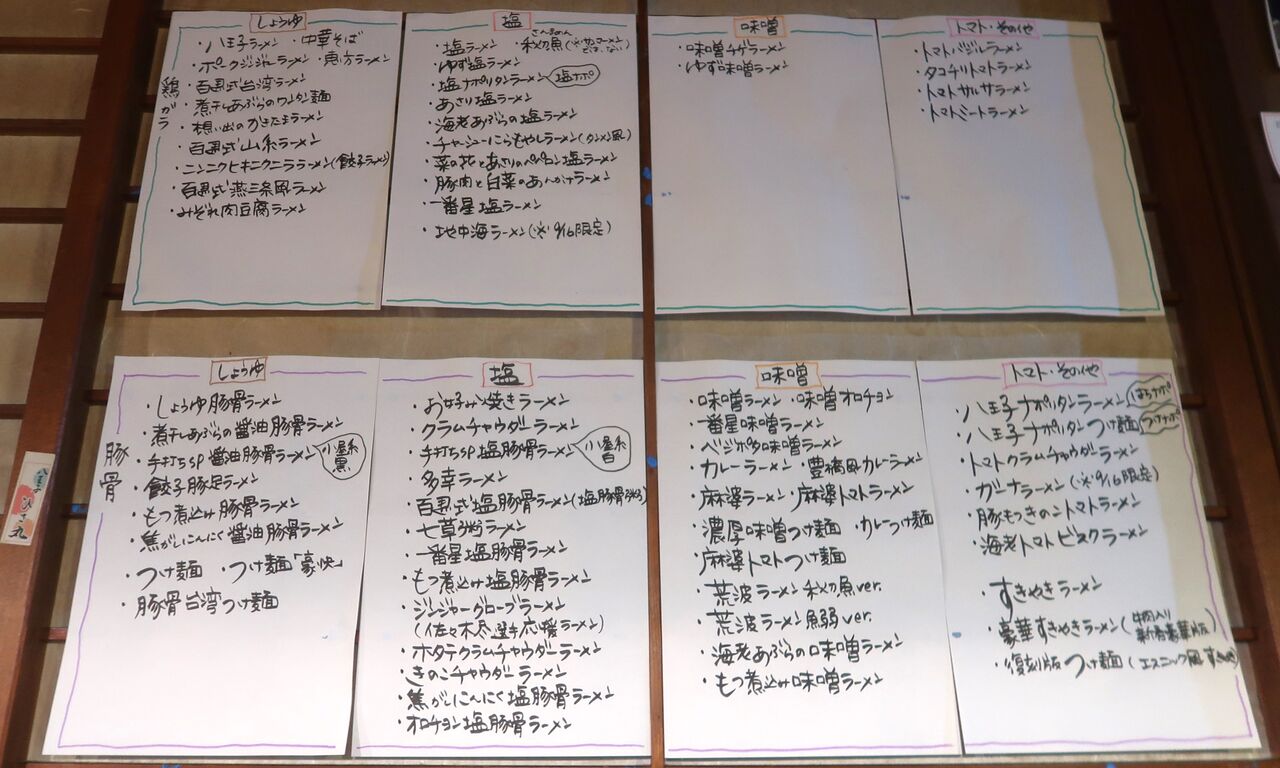 しょうゆ
鶏ガラ
・八王子ラーメン ・中華そば
・ポークジンジャーラーメン ・恵方ラーメン
・百思式台湾ラーメン
・煮干しあぶらのワンタン麺
・想い出のかきたまラーメン
・ニンニクヒキニクニララーメン(餃子ラーメン)
・百思式燕三条風ラーメン
・みぞれ肉豆腐ラーメン
塩
・塩ラーメン ・秋刀魚
・ゆず塩ラーメン
・塩ナポリタンラーメン 塩ナポ
・あさり塩ラーメン
・海老あぶらの塩ラーメン
・チャーシューにらもやしラーメン(タンメン風)
・菜の花とあさりのペペロン塩ラーメン
・豚肉と白菜のあんかけラーメン
・一番星塩ラーメン
・地中海ラーメン(※9/16限定)
味噌
・味噌チゲラーメン
・ゆず味噌ラーメン
トマト・その他
・トマトバジルラーメン
・タコチリトマトラーメン
・トマトサルサラーメン
・トマトミートラーメン
しょうゆ
豚骨
・しょうゆ豚骨ラーメン
・煮干しあぶらの醤油豚骨ラーメン
・手打ちSP醤油豚骨ラーメン 小屋系黒
・餃子豚足ラーメン
・もつ煮込み豚骨ラーメン
・焦がしにんにく醤油豚骨ラーメン
・つけ麺 ・つけ麺「豪快」
・豚骨台湾つけ麺
塩
・お好み焼きラーメン
・クラムチャウダーラーメン
・手打ちSP塩豚骨ラーメン 小屋系白
・多幸ラーメン
・百思式塩豚骨ラーメン
・七草粥ラーメン
・一番星塩豚骨ラーメン
・もつ煮込み塩豚骨ラーメン
・ジンジャーグローブラーメン
(佐々木尽選手応援ラーメン)
・ホタテクラムチャウダーラーメン
・きのこチャウダーラーメン
・焦がしにんにく塩豚骨ラーメン
・オロチョン塩豚骨ラーメン
味噌
・味噌ラーメン ・味噌オロチョン
・一番星味噌ラーメン
・ベジポタ味噌ラーメン
・カレーラーメン ・豊橋風カレーラーメン
・麻婆ラーメン ・麻婆トマトラーメン
・濃厚味噌つけ麺 ・カレーつけ麺
・麻婆トマトつけ麺
・荒波ラーメン秋刀魚ver.
・荒波ラーメン魚弱ver.
・海老あぶらの味噌ラーメン
・もつ煮込み味噌ラーメン
トマト・その他
・八王子ナポリタンラーメン はちナポ
・八王子ナポリタンつけ麺 つけナポ
・トマトクラムチャウダーラーメン
・ガーナラーメン(※9/16限定)
・豚もつきのこトマトラーメン
・海老トマトビスクラーメン
・すきやきラーメン
・豪華すきやきラーメン(牛肉入り新春豪華版)
・復刻版つけ麺(エスニック風
八王子
ひこ丸